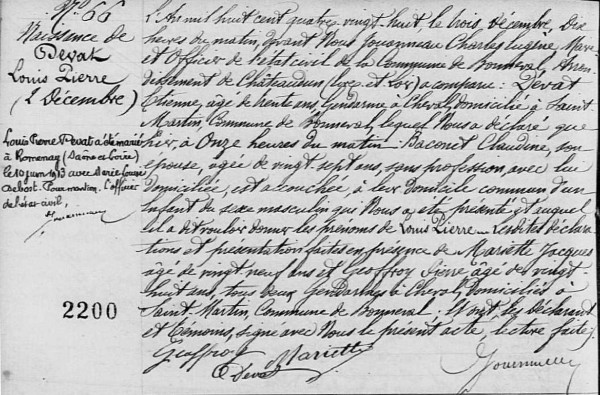 N° 66
Naissance de
Devat
Louis Pierre
(2 Décembre)
Louis Pierre Devat a été marié
à Romenay (Saône et Loire)
le 10 juin 1913 avec Marie Louise
Debost. Pour mention. L'officier
de l'état civil,
2200
L'An mil huit cent quatre vingt huit, le trois, décembre, Dix
heures du matin, devant Nous Jouanneau Charles Eugène, Maire
et Officier de l'état civil de la Commune de Bonneval, Arron-
dissement de Châteaudun (Eure et Loir) a comparu : Devat
Etienne, âgé de trente ans, Gendarme à Cheval, domicilié à Saint
Martin, Commune de Bonneval, lequel Nous a déclaré que
hier, à Onze heures du matin Baconet Claudine, son
épouse, âgée de vingt sept ans, sans profession, avec lui
domiciliée, est accouchée à leur domicile commun d'un
Enfant du sexe masculin qui Nous a été présenté et auquel
il a dit vouloir donner les prénoms de Louis Pierre. Lesdites déclara
tions et présentation faites en présence de Mariette Jacques
âgé de vingt neuf ans et Geoffroy Pierre âgé de vingt
huit ans, tous deux Gendarmes à Cheval, domiciliés à
Saint Martin, Commune de Bonneval. Et ont, les déclarant
et témoins, signé avec Nous le présent acte, lecture faite.
Geoffroy
Mariette
Devat
Jouanneau